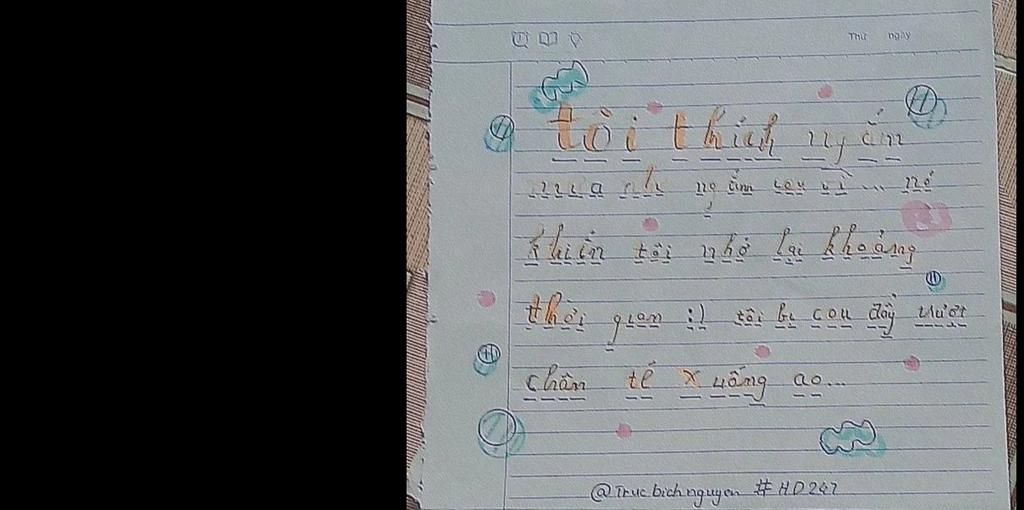 Thứ ngày
tôi thích ngắn
mưa và ngắm cậu vì ... nó
khiến tôi nhớ lại khoảng
thời gian :) tôi bị cậu đẩy trượt
chân té xuống ao...
@Trucbichnguyen #HD247